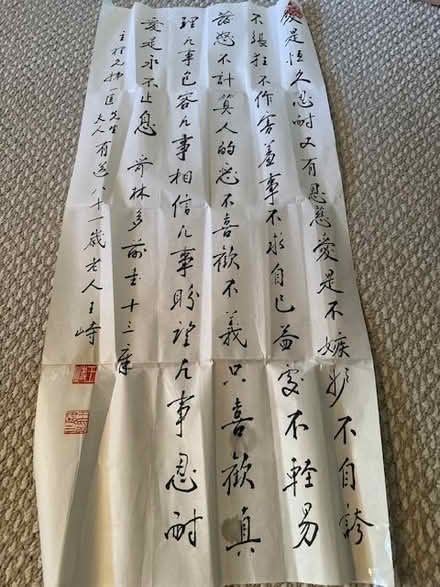 愛是恒久忍耐又有恩慈愛是不嫉妒不自誇
不張狂不作害羞事不求自己益處不輕易
發怒不計算人的惡不喜歡不義只喜歡真
理凡事包容凡事相信凡事盼望凡事忍耐
愛是永不止息 哥林多前書十三章
先生
夫人 八十一歲老人王崎